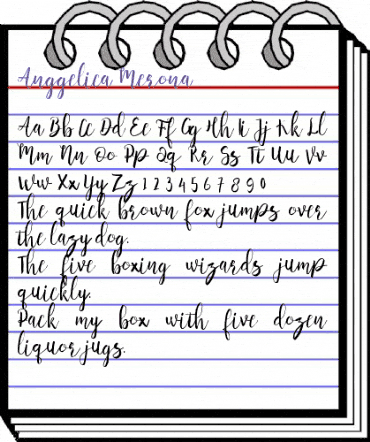 Anggelica Merona
Aa Bb Cc Dd Ee Ff Gg Hh Ii Jj Kk Ll
Mm Nn Oo Pp Qq Rr Ss Tt Uu Vv
Ww Xx Yy Zz 1 2 3 4 5 6 7 8 9 0
The quick brown fox jumps over
the lazy dog.
The five boxing wizards jump
quickly.
Pack my box with five dozen
liquor jugs.